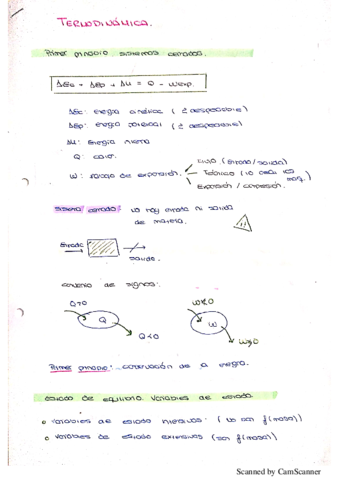 TERMODINÁMICA.
Primer principio. sistemas cerrados.
ΔEc + ΔEp + ΔU = Q - Wexp.
ΔEc: energía cinética ( ≃ despreciable)
ΔEp: energía potencial ( ≃ despreciable)
ΔU: Energía interna
Q: calor.
Flujo (Entrada/salida)
W: trabajo de expansión.
Técnico (lo realiza
Expansión / compresión.
Sistema cerrado: no hay entrada ni salida
de materia.
Entrada
salida.
convenio de signos:
Q>0
Q
Q<0
W<0
W
W>0
Primer principio: conservación de la energía.
Estado de equilibrio. Variables de estado
o Variables de estado intensivas: ( no son f(masa))
o Variables de estado extensivas (son f(masa))
Scanned by CamScanner